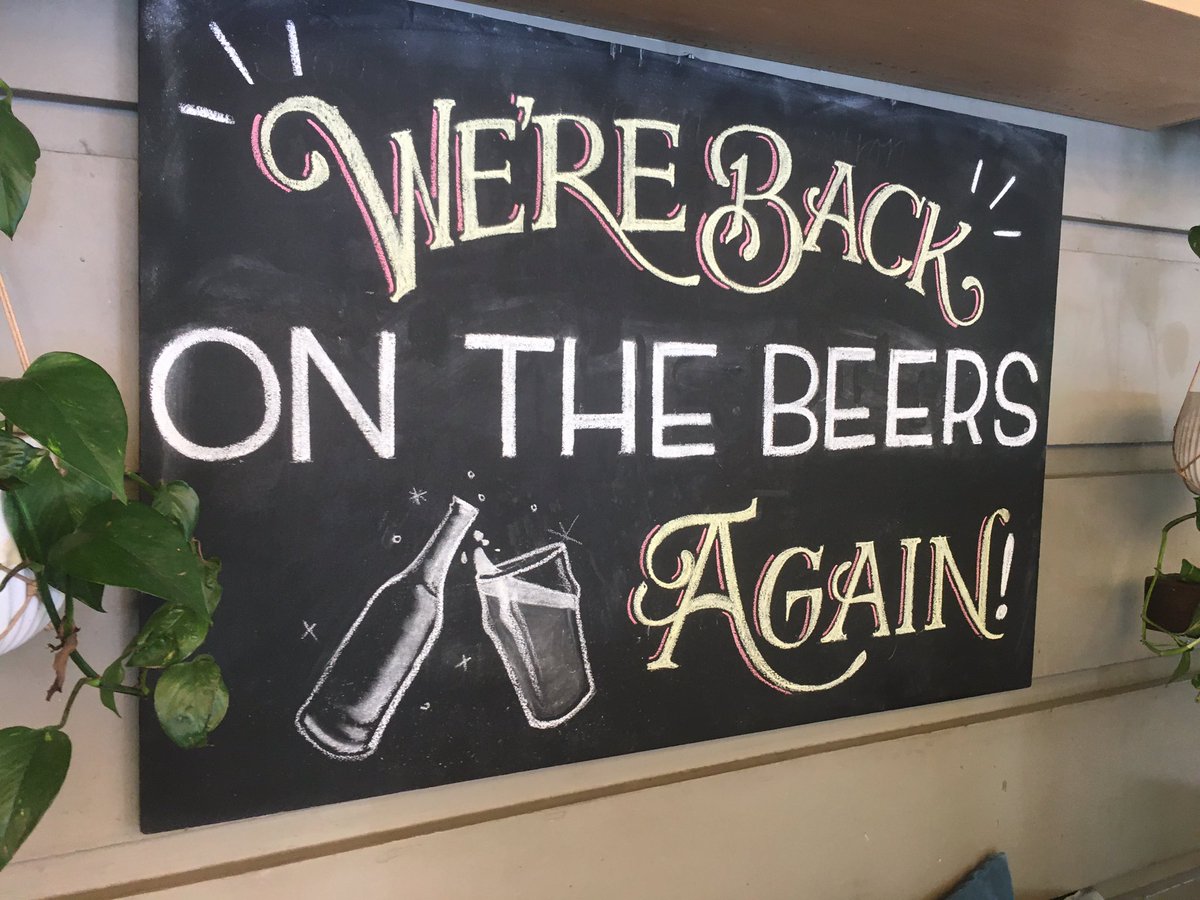 WE'RE BACK
ON THE BEERS
AGAIN!